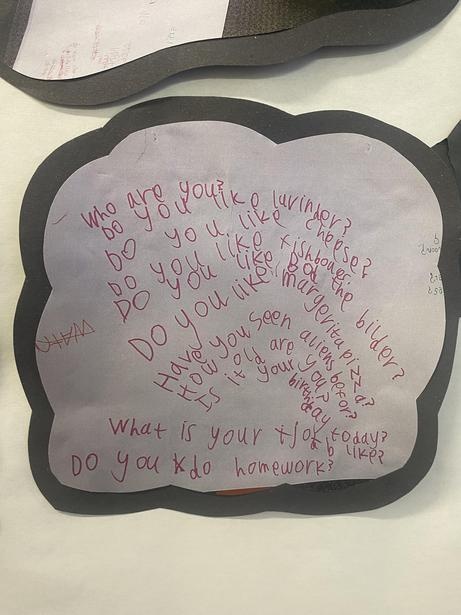 Who are you?
Do you like lavinder?
Do you like cheese?
Do you like fishbowe
Do you like Bob the bilder?
Do you like margerita pizza?
Have you seen aliens befor?
How old are you?
Is it your birthday today?
What is your job like?
Do you do homework?